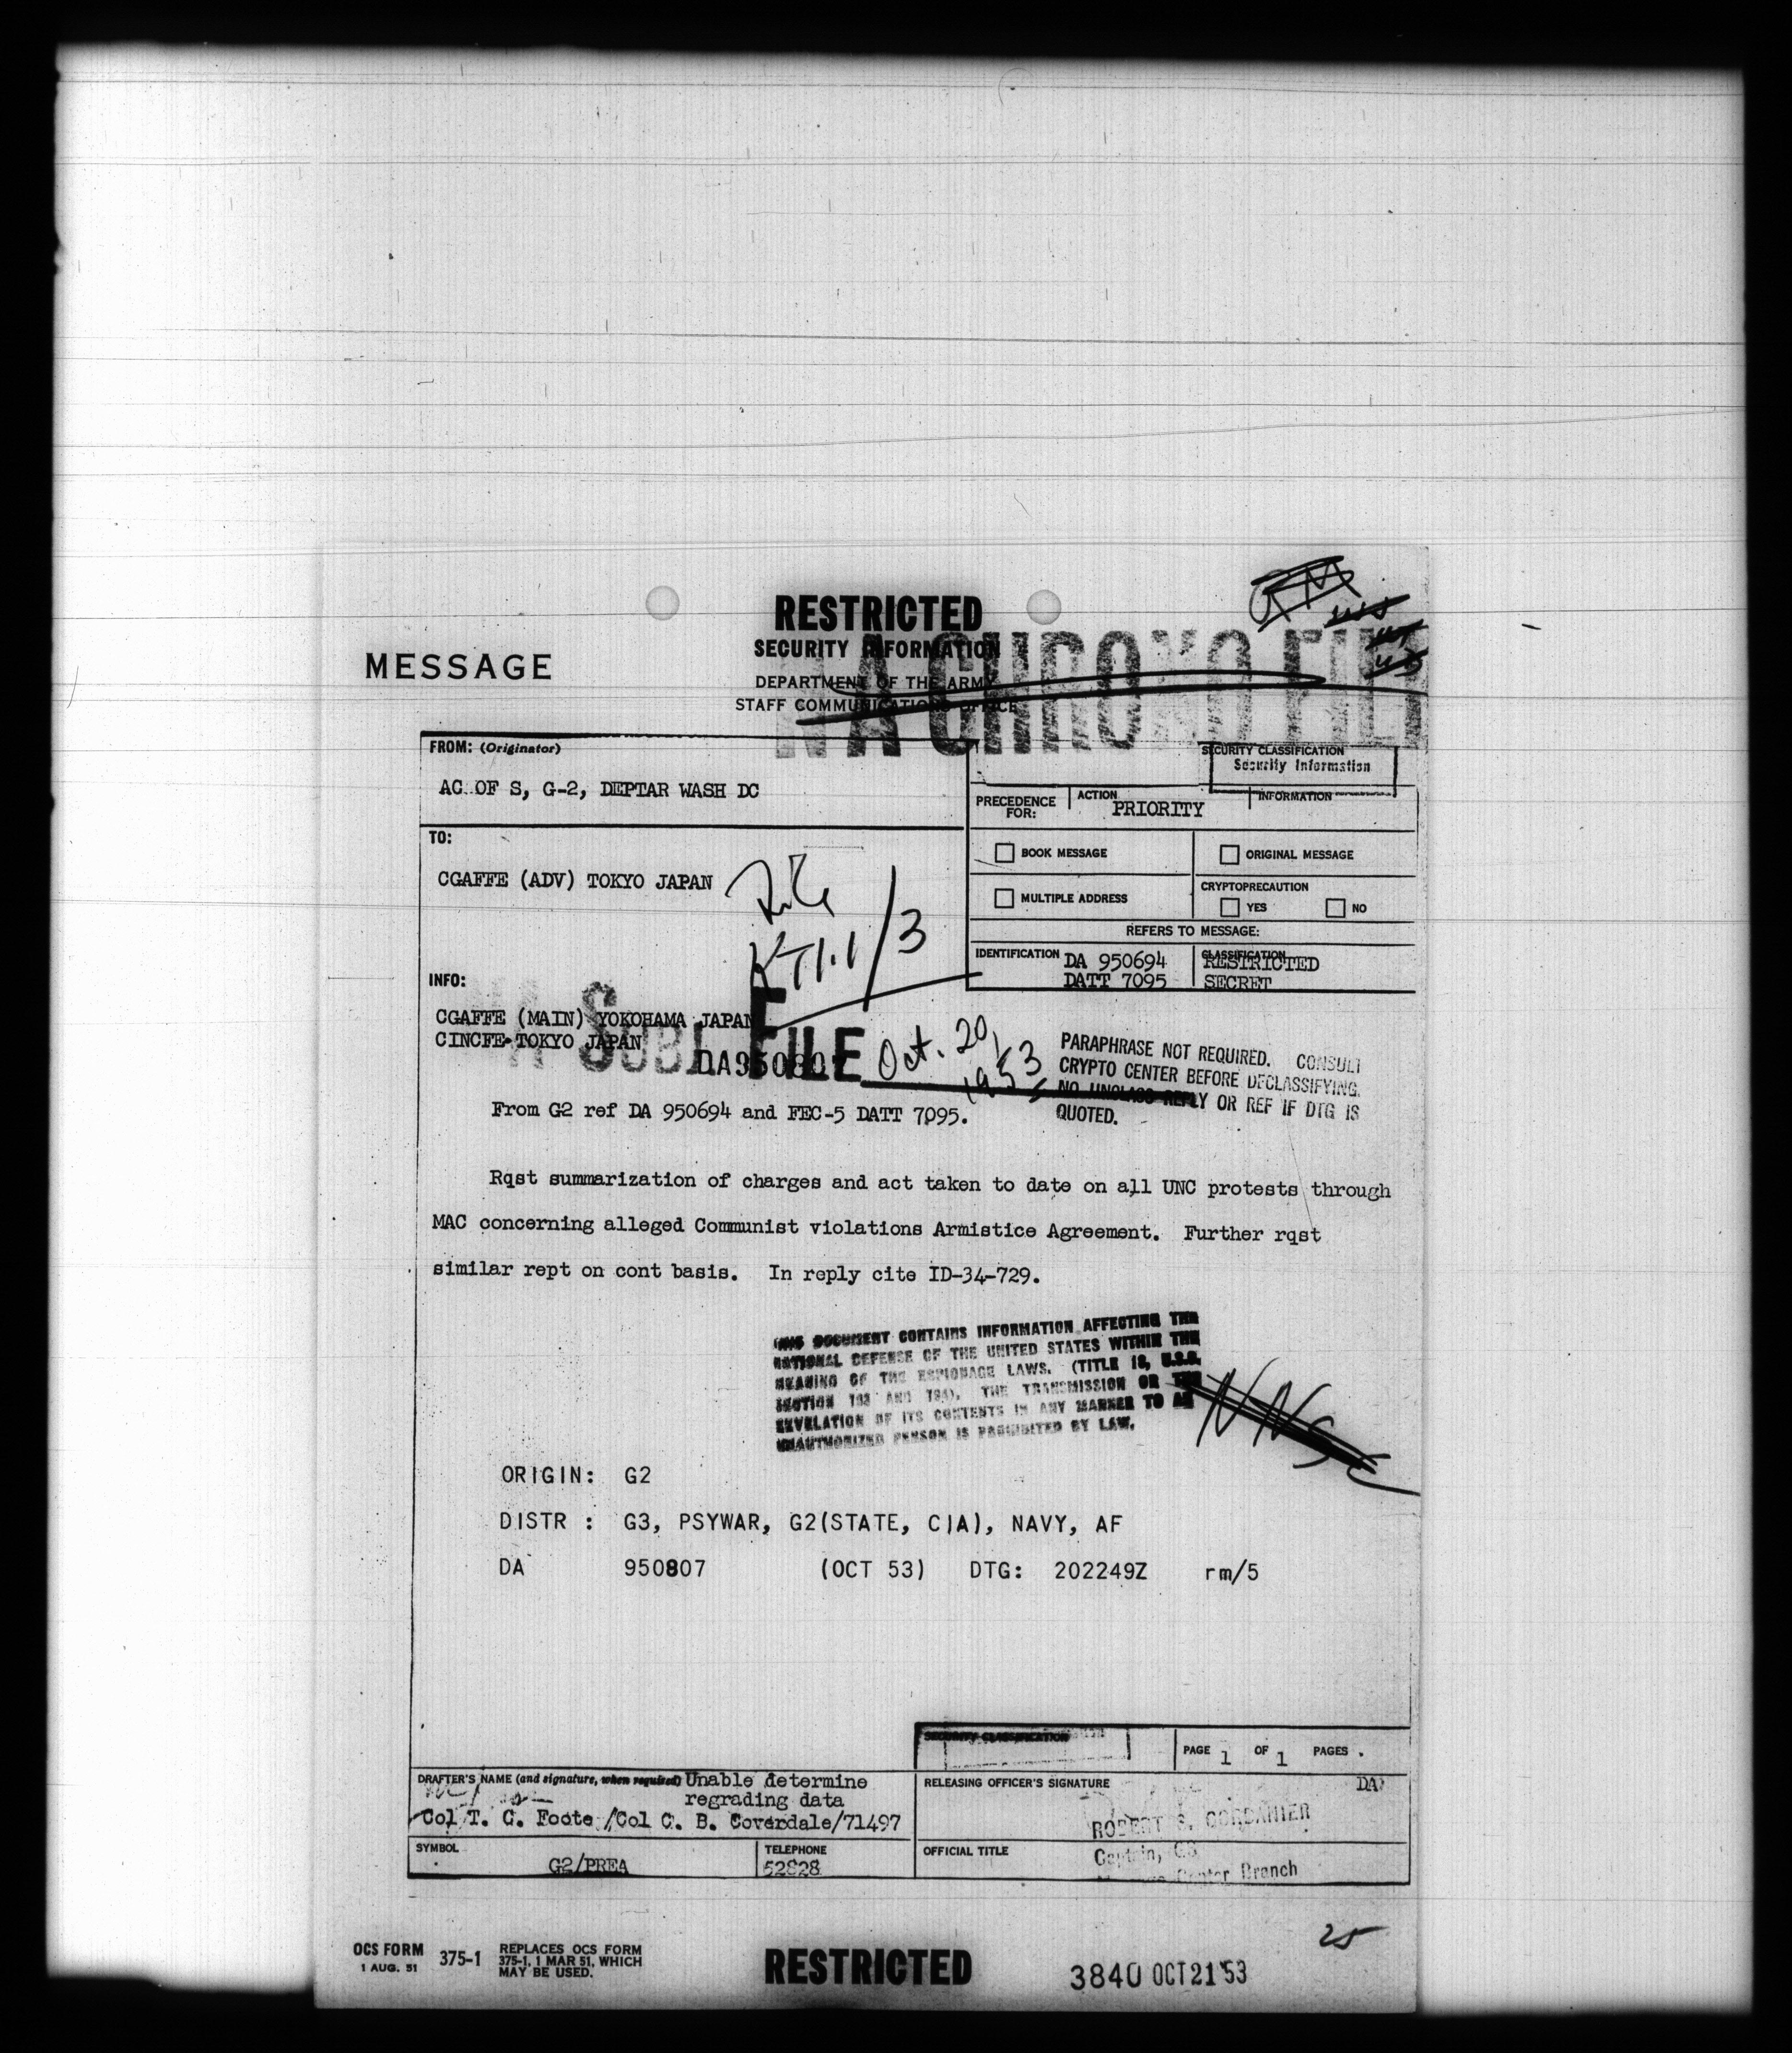 RESTRICTED
SECURITY INFORMATION
MESSAGE
NA CHRONO FILE
DEPARTMENT OF THE ARMY
STAFF COMMUNICATIONS OFFICE
FROM: (Originator)
AC OF S, G-2, DEPTAR WASH DC
SECURITY CLASSIFICATION
Security Information
PRECEDENCE FOR:
ACTION
PRIORITY
INFORMATION
TO:
CGAFFE (ADV) TOKYO JAPAN
BOOK MESSAGE
ORIGINAL MESSAGE
MULTIPLE ADDRESS
CRYPTOPRECAUTION
YES
NO
REFERS TO MESSAGE:
IDENTIFICATION
DA 950694
DATT 7095
CLASSIFICATION
RESTRICTED
SECRET
File
K71.1/3
INFO:
CGAFFE (MAIN) YOKOHAMA JAPAN
CINCFE TOKYO JAPAN
NA SUBJ FILE
DA950807
Oct. 20, 1953
PARAPHRASE NOT REQUIRED. CONSULT
CRYPTO CENTER BEFORE DECLASSIFYING.
NO UNCLASS REPLY OR REF IF DTG IS
QUOTED.
From G2 ref DA 950694 and FEC-5 DATT 7095.
Rqst summarization of charges and act taken to date on all UNC protests through
MAC concerning alleged Communist violations Armistice Agreement. Further rqst
similar rept on cont basis. In reply cite ID-34-729.
THIS DOCUMENT CONTAINS INFORMATION AFFECTING THE
NATIONAL DEFENSE OF THE UNITED STATES WITHIN THE
MEANING OF THE ESPIONAGE LAWS. (TITLE 18, U.S.C.
SECTION 793 AND 794). THE TRANSMISSION OR THE
REVELATION OF ITS CONTENTS IN ANY MANNER TO AN
UNAUTHORIZED PERSON IS PROHIBITED BY LAW.
ORIGIN: G2
DISTR : G3, PSYWAR, G2(STATE, CIA), NAVY, AF
DA 950807 (OCT 53) DTG: 202249Z rm/5
SECURITY CLASSIFICATION
PAGE 1 OF 1 PAGES
DRAFTER'S NAME (and signature, when required)
Unable determine
regrading data
Col T. G. Foote /Col C. B. Coverdale/71497
RELEASING OFFICER'S SIGNATURE
DA
ROBERT S. CORDANIER
SYMBOL
G2/PREA
TELEPHONE
52828
OFFICIAL TITLE
Captain,
Center Branch
OCS FORM
1 AUG. 51
375-1
REPLACES OCS FORM
375-1, 1 MAR 51, WHICH
MAY BE USED.
RESTRICTED
25
3840 OCT 21 '53